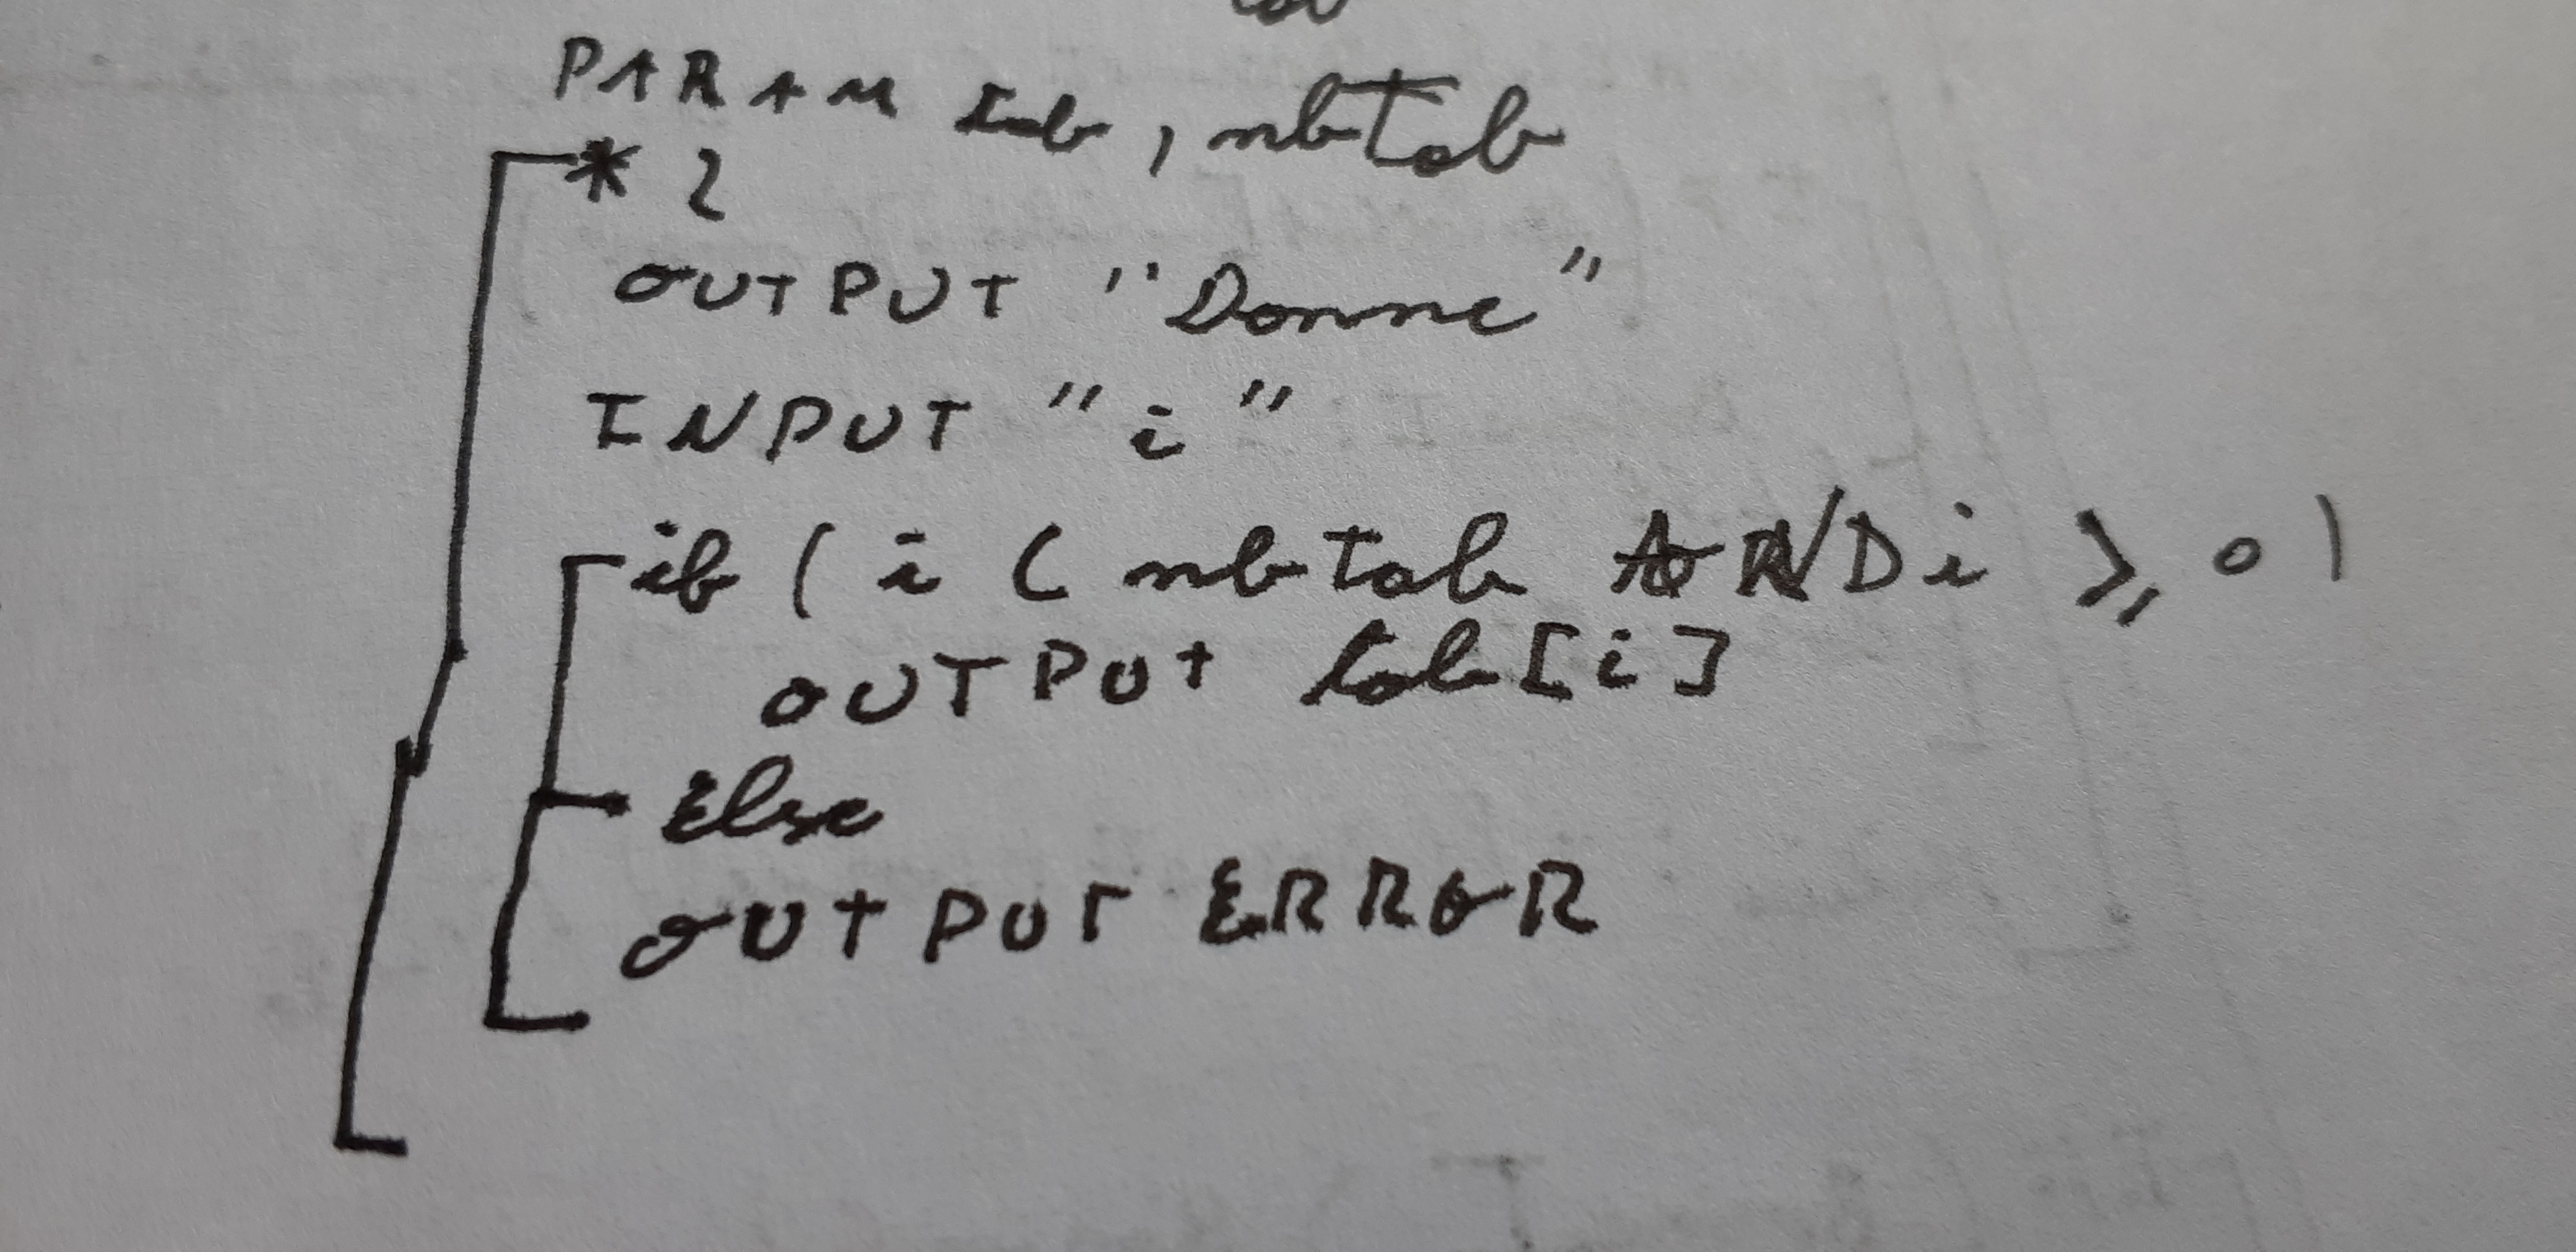 PARAM tab, nbTab
* 2
OUTPUT "Donne"
INPUT "i"
if ( i ( nbtab AND i ⩾ 0 )
OUTPUT tab[i]
Else
OUTPUT ERROR